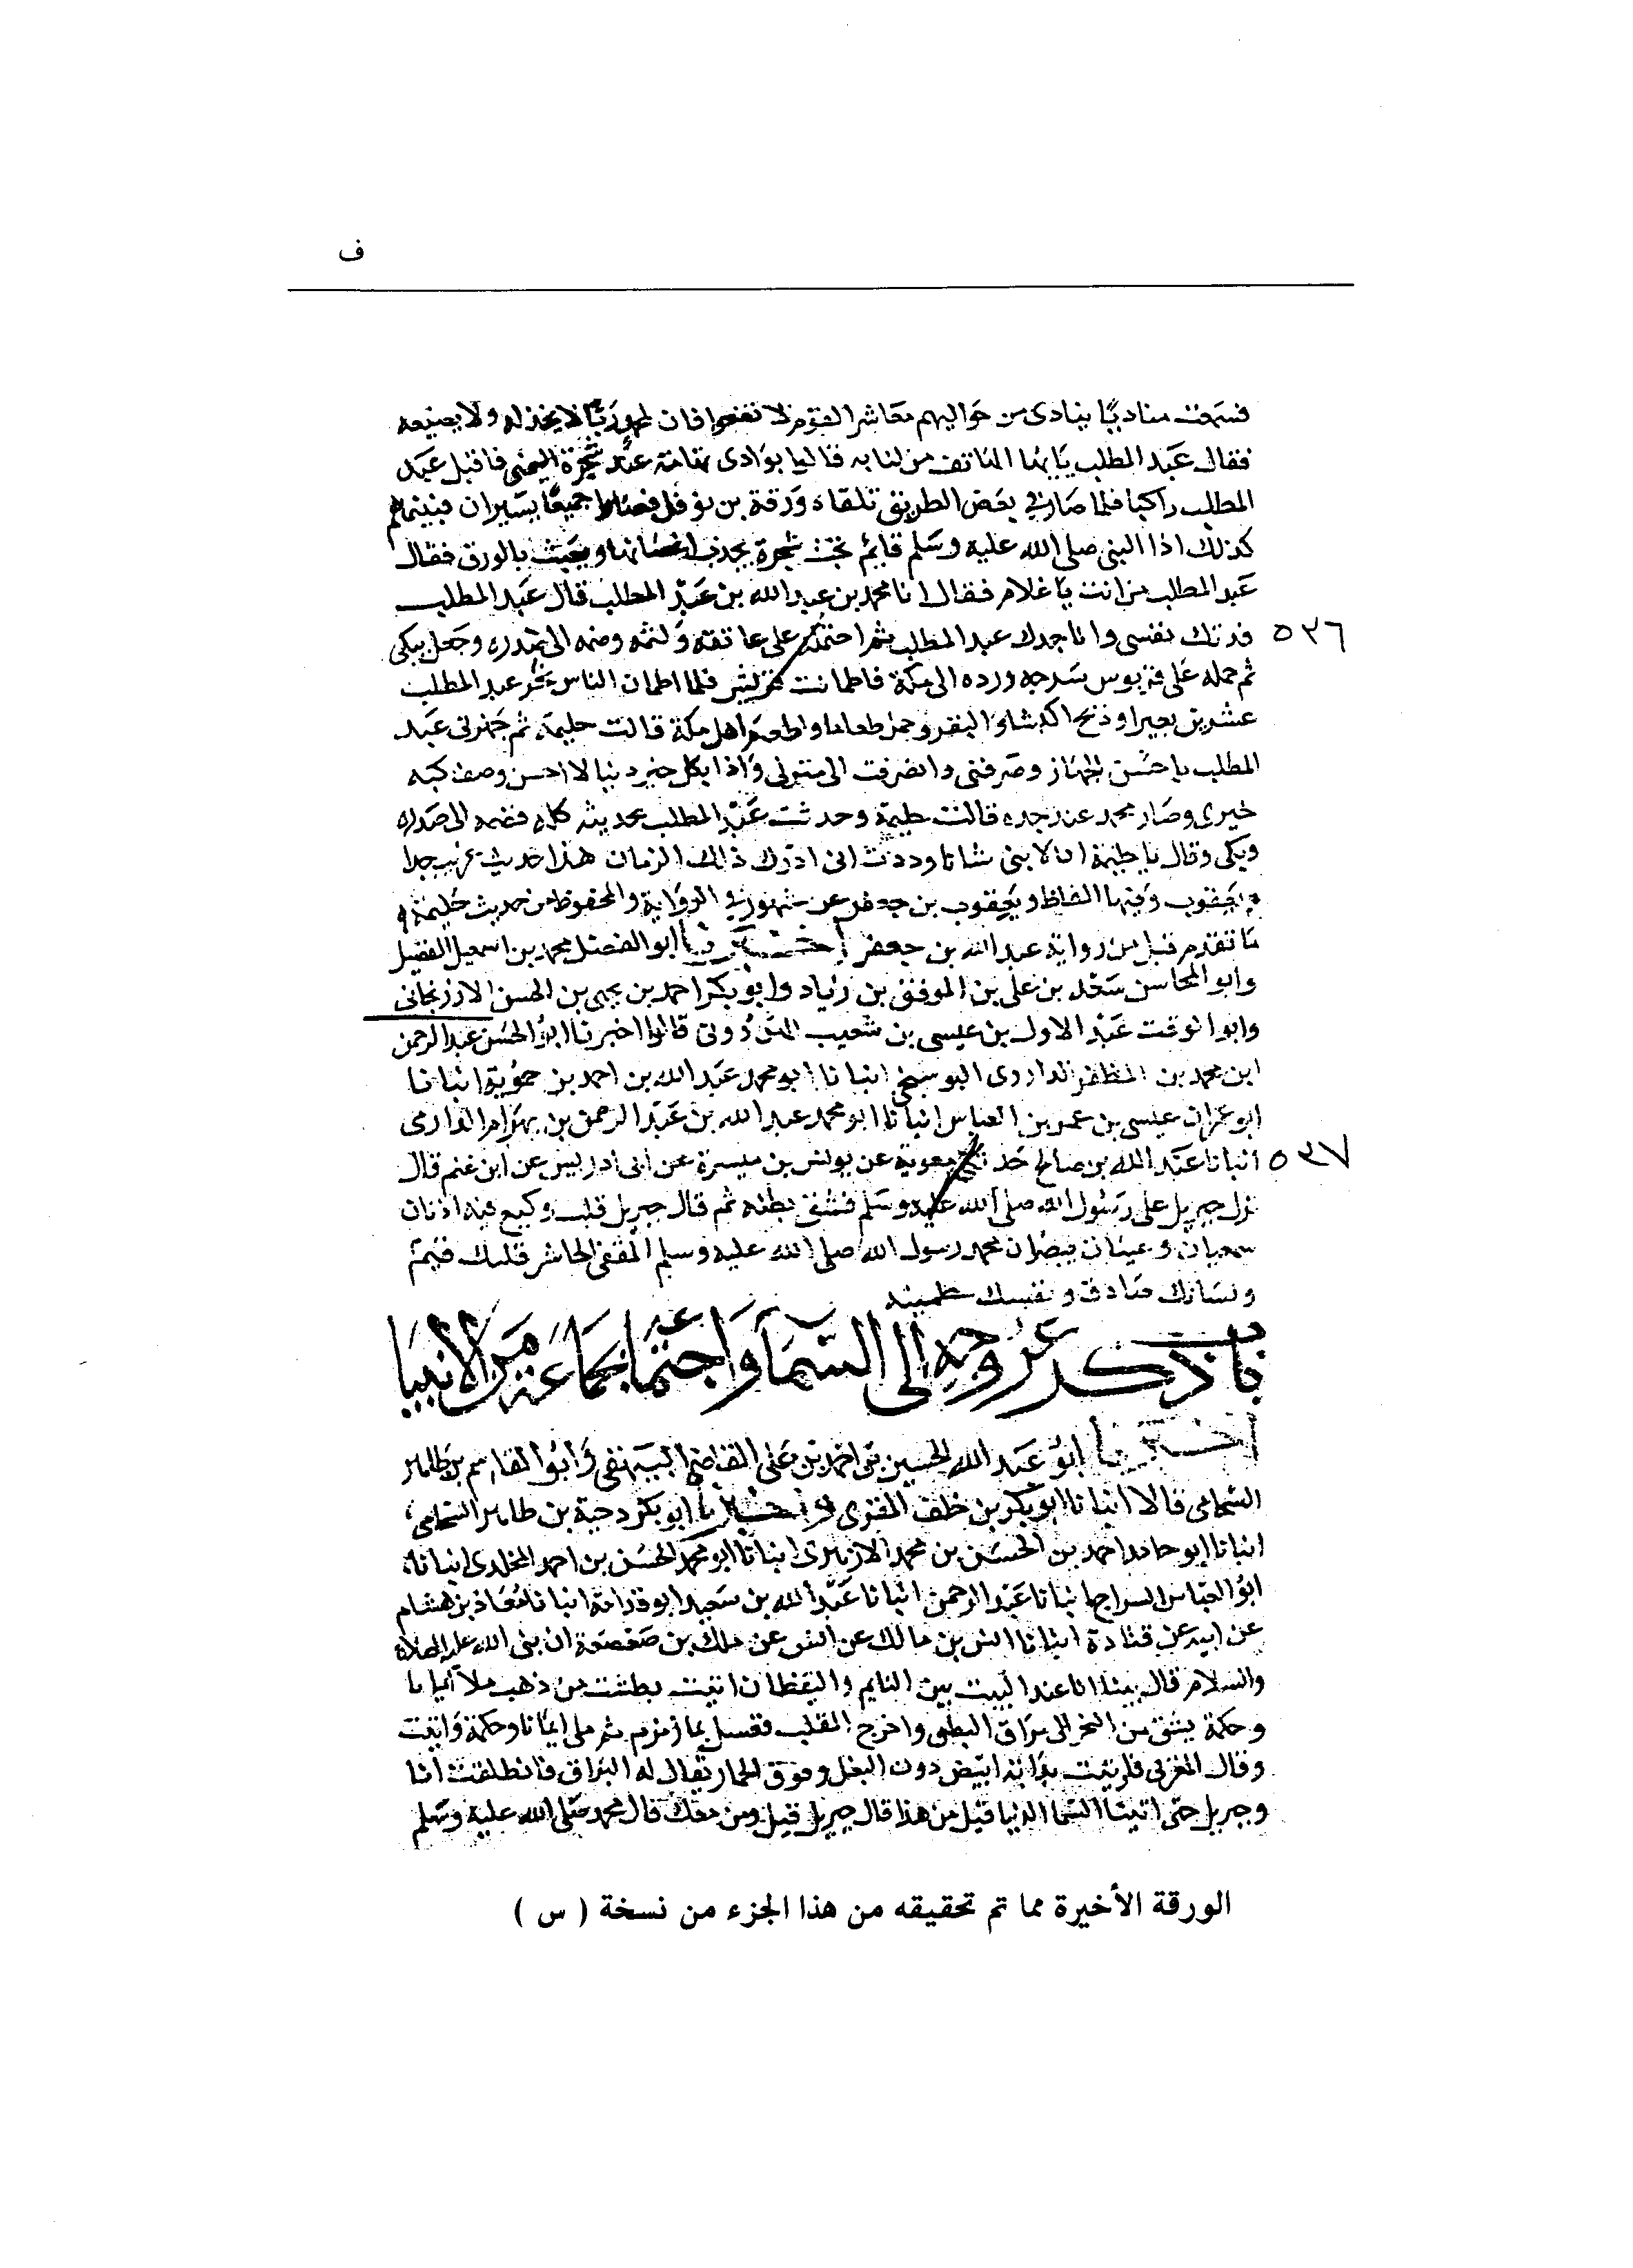 ف
فسمعت مناديا ينادى من حواليهم معاشر القوم لا تضجوا فان لمحمد ربا لا يخذله ولا يضيعه
فقال عبد المطلب يا يها الهاتف من لنا به فقال بوادى تهامة عند شجرة اليمنى فاقبل عبد
المطلب راكبا فلما صار في بعض الطريق تلقاه ورقة بن نوفل فصارا جميعا يسيران فبينما هم
كذلك اذا النبي صلى الله عليه وسلم قايم تحت شجرة يجذب اغصانها ويعبث بالورق فقال
عبد المطلب من انت يا غلام فقال انا محمد بن عبد الله بن عبد المطلب قال عبد المطلب
فدتك نفسى وانا جدك عبد المطلب ثم احتمله على عاتقه ولثمه وضمه الى صدره وجعل يبكى
٥٣٦
ثم حمله على قربوس سرجه ورده الى مكة فاطمانت قريش فلما اطمان الناس نحر عبد المطلب
عشرين بعيرا وذبح الشاء والبقر وحمل طعاما واطعم اهل مكة قالت حليمة ثم جهزنى عبد
المطلب باحسن الجهاز وصرفنى وانصرفت الى منزلى واذا بكل خير دنيا لا احسن وصف كنه
خيرى وصار محمد عند جده قالت حليمة وحدثت عبد المطلب بحديثه كله فضمه الى صدره
وبكى وقال يا حليمة ان لابنى شانا وددت انى ادرك ذلك الزمان هذا حديث غريب جدا
يعقوب بن جعفر غير مشهور في الرواية والمحفوظ من حديث حليمة
ما تقدم قبل من رواية عبد الله بن جعفر اخبرنا ابو الفضل محمد بن اسمعيل الفضيل
وابو المحاسن سعد بن على بن الموفق بن زياد وابو بكر احمد بن يحيى بن الحسن الاذرنجانى
وابو الوقت عبد الاول بن عيسى بن شعيب قالوا اخبرنا ابو الحسن عبد الرحمن
ابن محمد بن المظفر الداودى البوسنجى انبانا ابو محمد عبد الله بن احمد بن حموية انبانا
ابو عمران عيسى بن عمر بن العباس انبانا ابو محمد عبد الله بن عبد الرحمن بن بهرام الدارمى
انبانا عبد الله بن صالح حدثنى معوية عن يونس بن ميسرة عن ابى ادريس عن ابن غنم قال
٥٣٧
نزل جبريل على رسول الله صلى الله عليه وسلم فشق بطنه ثم قال جبريل قلب وكيع فيه اذنان
سمعيان وعينان يبصران محمد رسول الله صلى الله عليه وسلم المقفى الحاشر قلبك قيم
ولسانك صادق ونفسك مطمينه
باب ذكر عروجه الى السماء واجتماعه بجماعة من الانبيا
اخبرنا ابو عبد الله الحسين بن احمد بن على القاضى البيهقى وابو القاسم بن طاهر
الشحامى قالا انبانا ابو بكر بن خلف المقرى واخبرنا ابو بكر وجيه بن طاهر الشحامى
انبانا ابو حامد احمد بن الحسن بن محمد الازهرى انبانا ابو محمد الحسن بن احمد المخلدى انبانا
ابو العباس السراج انبانا عبد الرحمن انبانا عبد الله بن سعيد ابو قدامة انبانا معاذ بن هشام
عن ابيه عن قتادة انبانا انس بن مالك عن انس عن ملك بن صعصعة ان نبى الله عليه الصلاة
والسلام قال بينا انا عند البيت بين النايم واليقظان اتيت بطشت من ذهب ملآ ايمانا
وحكمة يشق من النحر الى مراق البطن واخرج القلب فغسل بما زمزم ثم ملى ايمانا وحكمة واتيت
وقال المغربى فلربيت بدابة ابيض دون البغل وفوق الحمار يقال له البراق فانطلقت انا
وجبريل حتى اتينا السما الدنيا قيل من هذا قال جبريل قيل ومن معك قال محمد صلى الله عليه وسلم
الورقة الأخيرة مما تم تحقيقه من هذا الجزء من نسخة ( س )